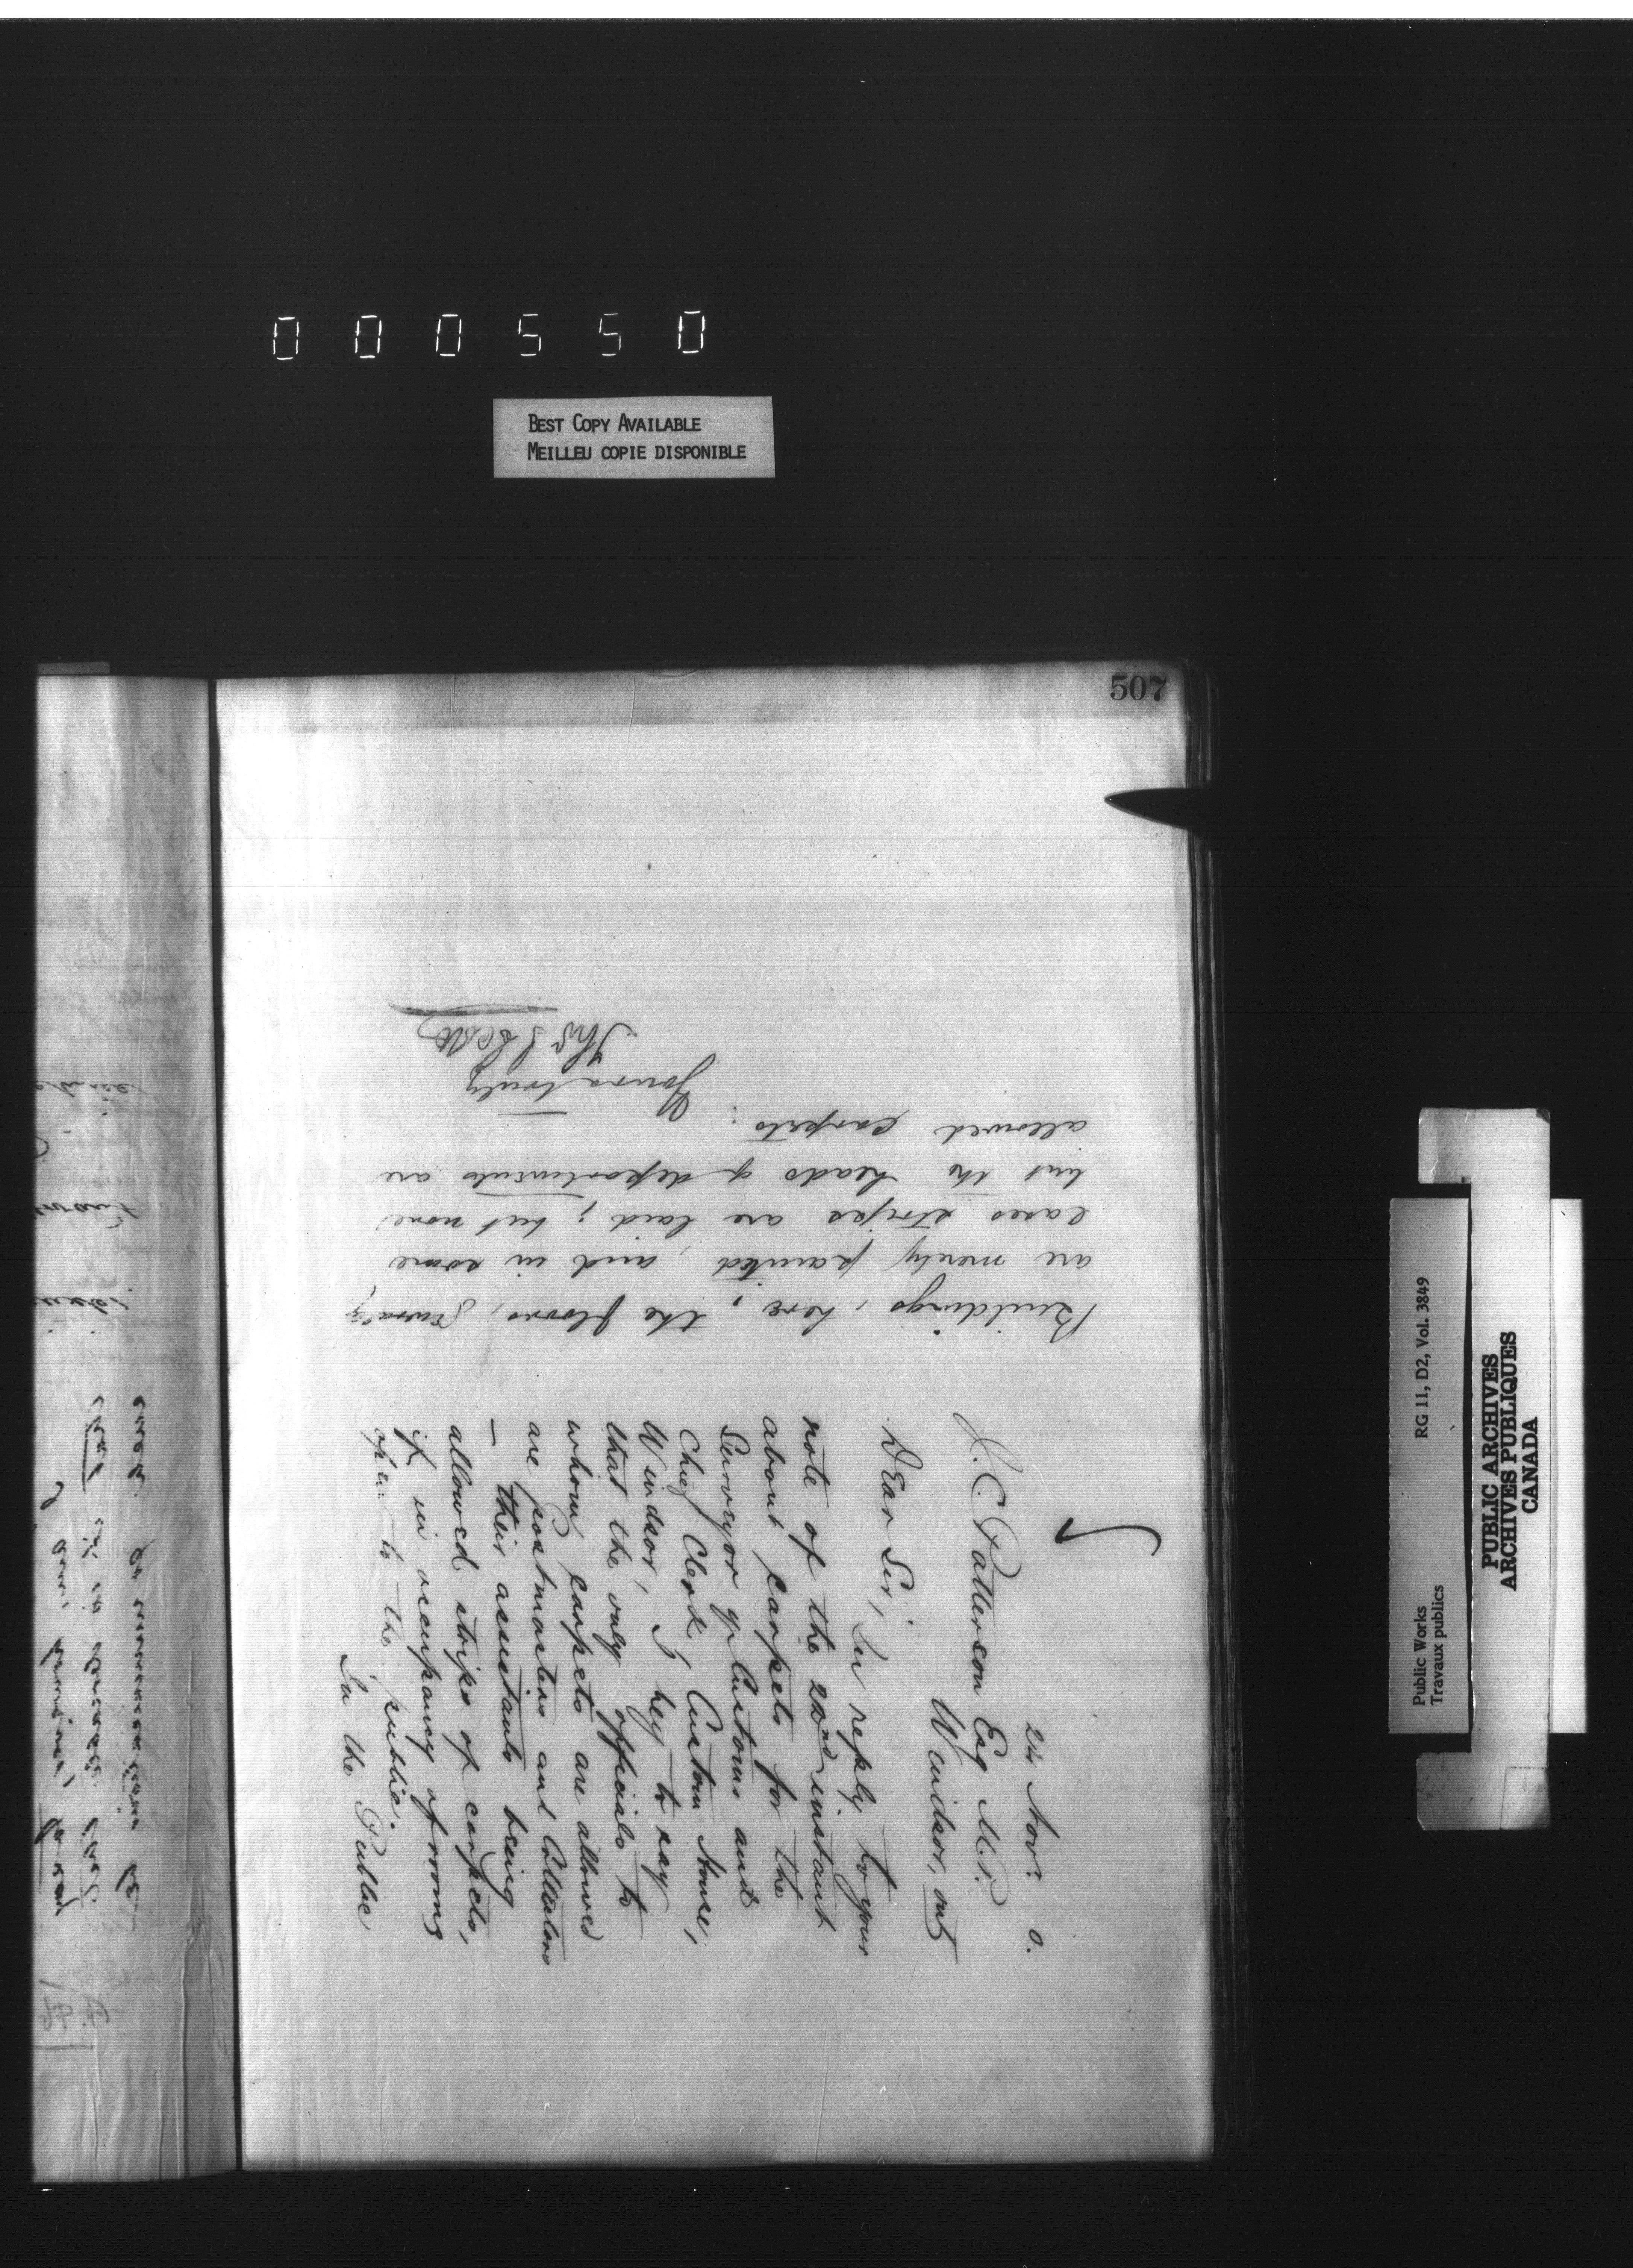 000550
BEST COPY AVAILABLE
MEILLEU COPIE DISPONIBLE
507
24 Nov: 0.
J. C. Patterson Esq M.P.
Windsor, Ont
Dear Sir, In reply to your
note of the 22nd instant
about carpets for the
Surveyor of Customs and
Chief Clerk, Custom House,
Windsor, I beg to say
that the only officials to
whom carpets are allowed
are postmasters and Collectors
— their assistants being
allowed strips of carpets,
if in occupancy of rooms
open to the public.
In the Public
Buildings, here, the floors, generally
are merely painted, and in some
cases strips are laid; but none
but the heads of departments are
allowed carpets.
Yours truly
Public Works
Travaux publics
RG 11, D2, Vol. 3849
PUBLIC ARCHIVES
ARCHIVES PUBLIQUES
CANADA